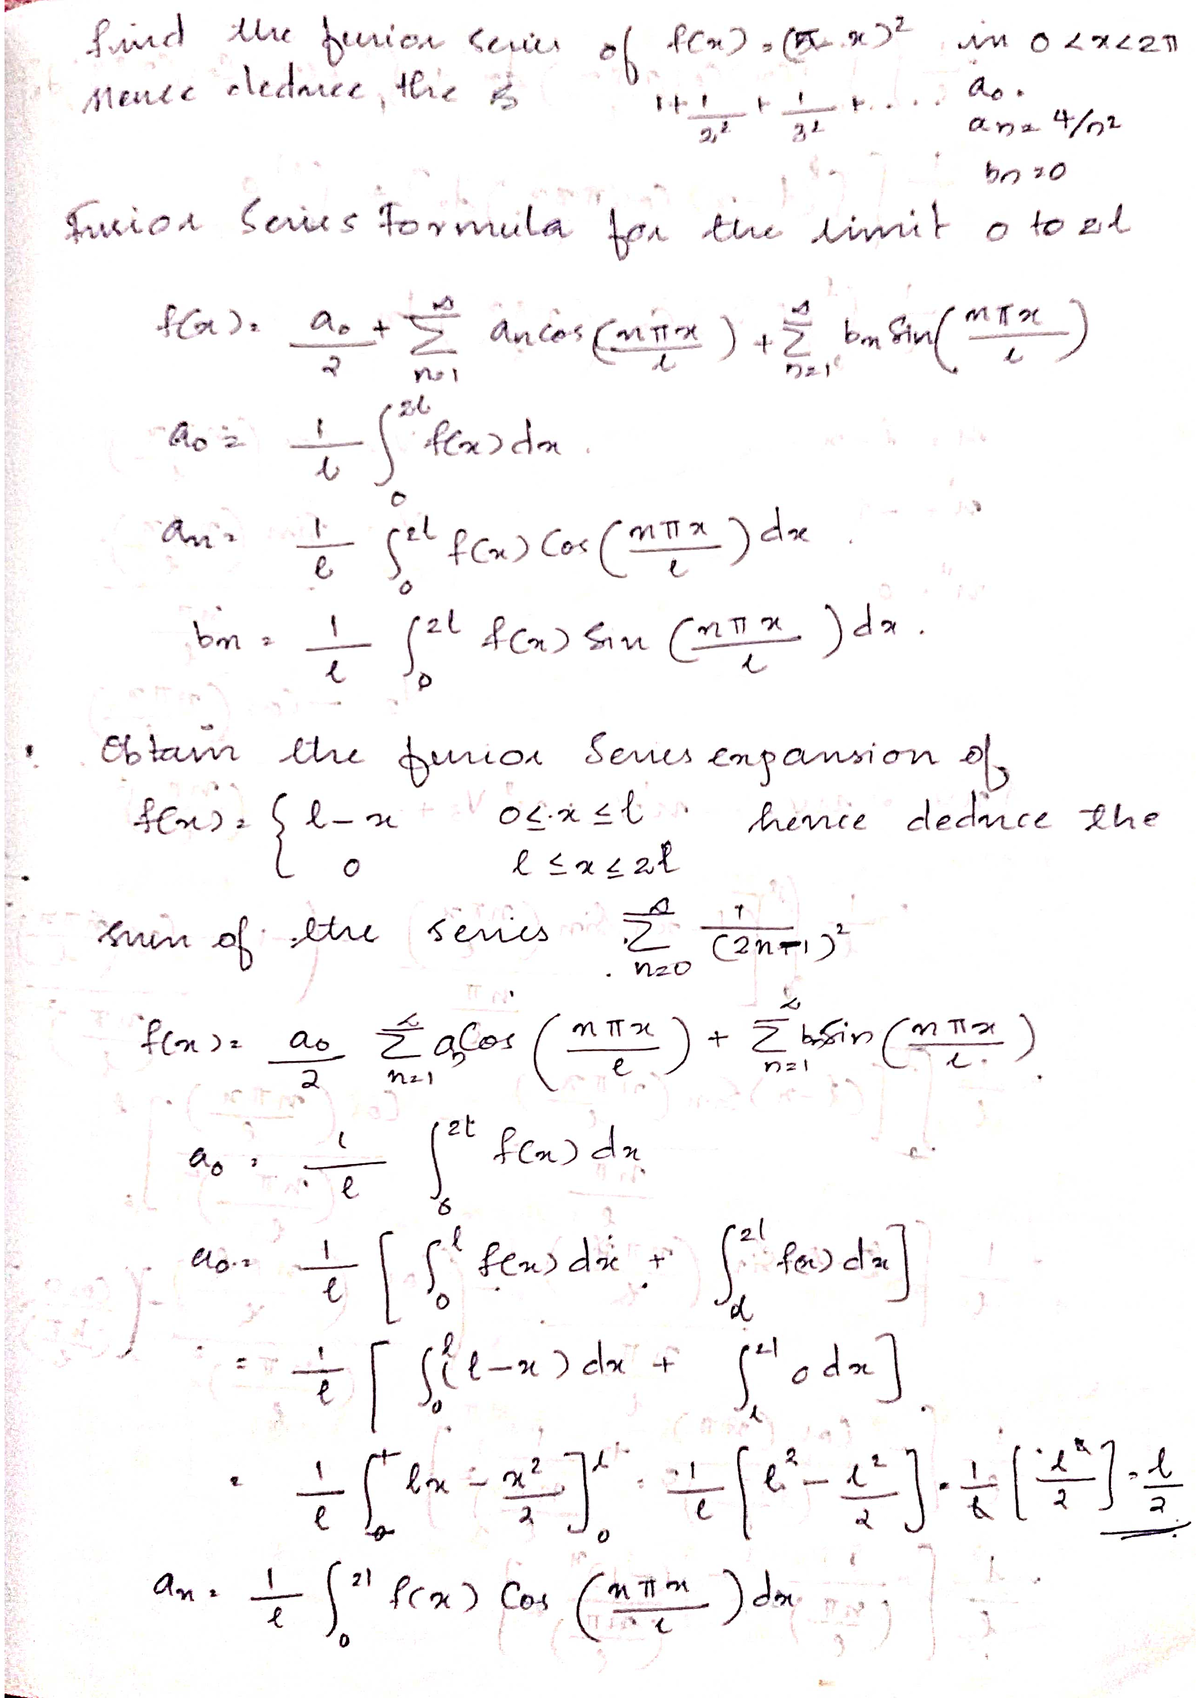 find the furior series of f(x) = (π-x)² in 0<x<2π
Hence deduce, the is 1+1/2² + 1/3² + .... a0.
an = 4/n²
bn = 0
Furior Series Formula for the limit 0 to 2l
f(x) = a0/2 + ∑ n=1 ∞ an cos (nπx/l) + ∑ n=1 ∞ bn Sin (nπx/l)
a0 = 1/l ∫₀²ˡ f(x) dx.
an = 1/l ∫₀²ˡ f(x) Cos (nπx/l) dx.
bn = 1/l ∫₀²ˡ f(x) Sin (nπx/l) dx.
Obtain the furior Series expansion of
f(x) = { l-x 0≤x≤l hence deduce the
0 l≤x≤2l
sum of the series ∑ n=0 ∞ 1/(2n+1)²
f(x) = a0/2 ∑ n=1 ∞ an Cos (nπx/l) + ∑ n=1 ∞ bn Sin (nπx/l).
a0 = 1/l ∫₀²ˡ f(x) dx
a0 = 1/l [ ∫₀ˡ f(x) dx + ∫ₗ²ˡ f(x) dx ]
= 1/l [ ∫₀ˡ (l-x) dx + ∫ₗ²ˡ 0 dx ]
= 1/l [ lx - x²/2 ]₀ˡ = 1/l [ l² - l²/2 ] = 1/l [ l²/2 ] = l/2
an = 1/l ∫₀²ˡ f(x) Cos (nπx/l) dx